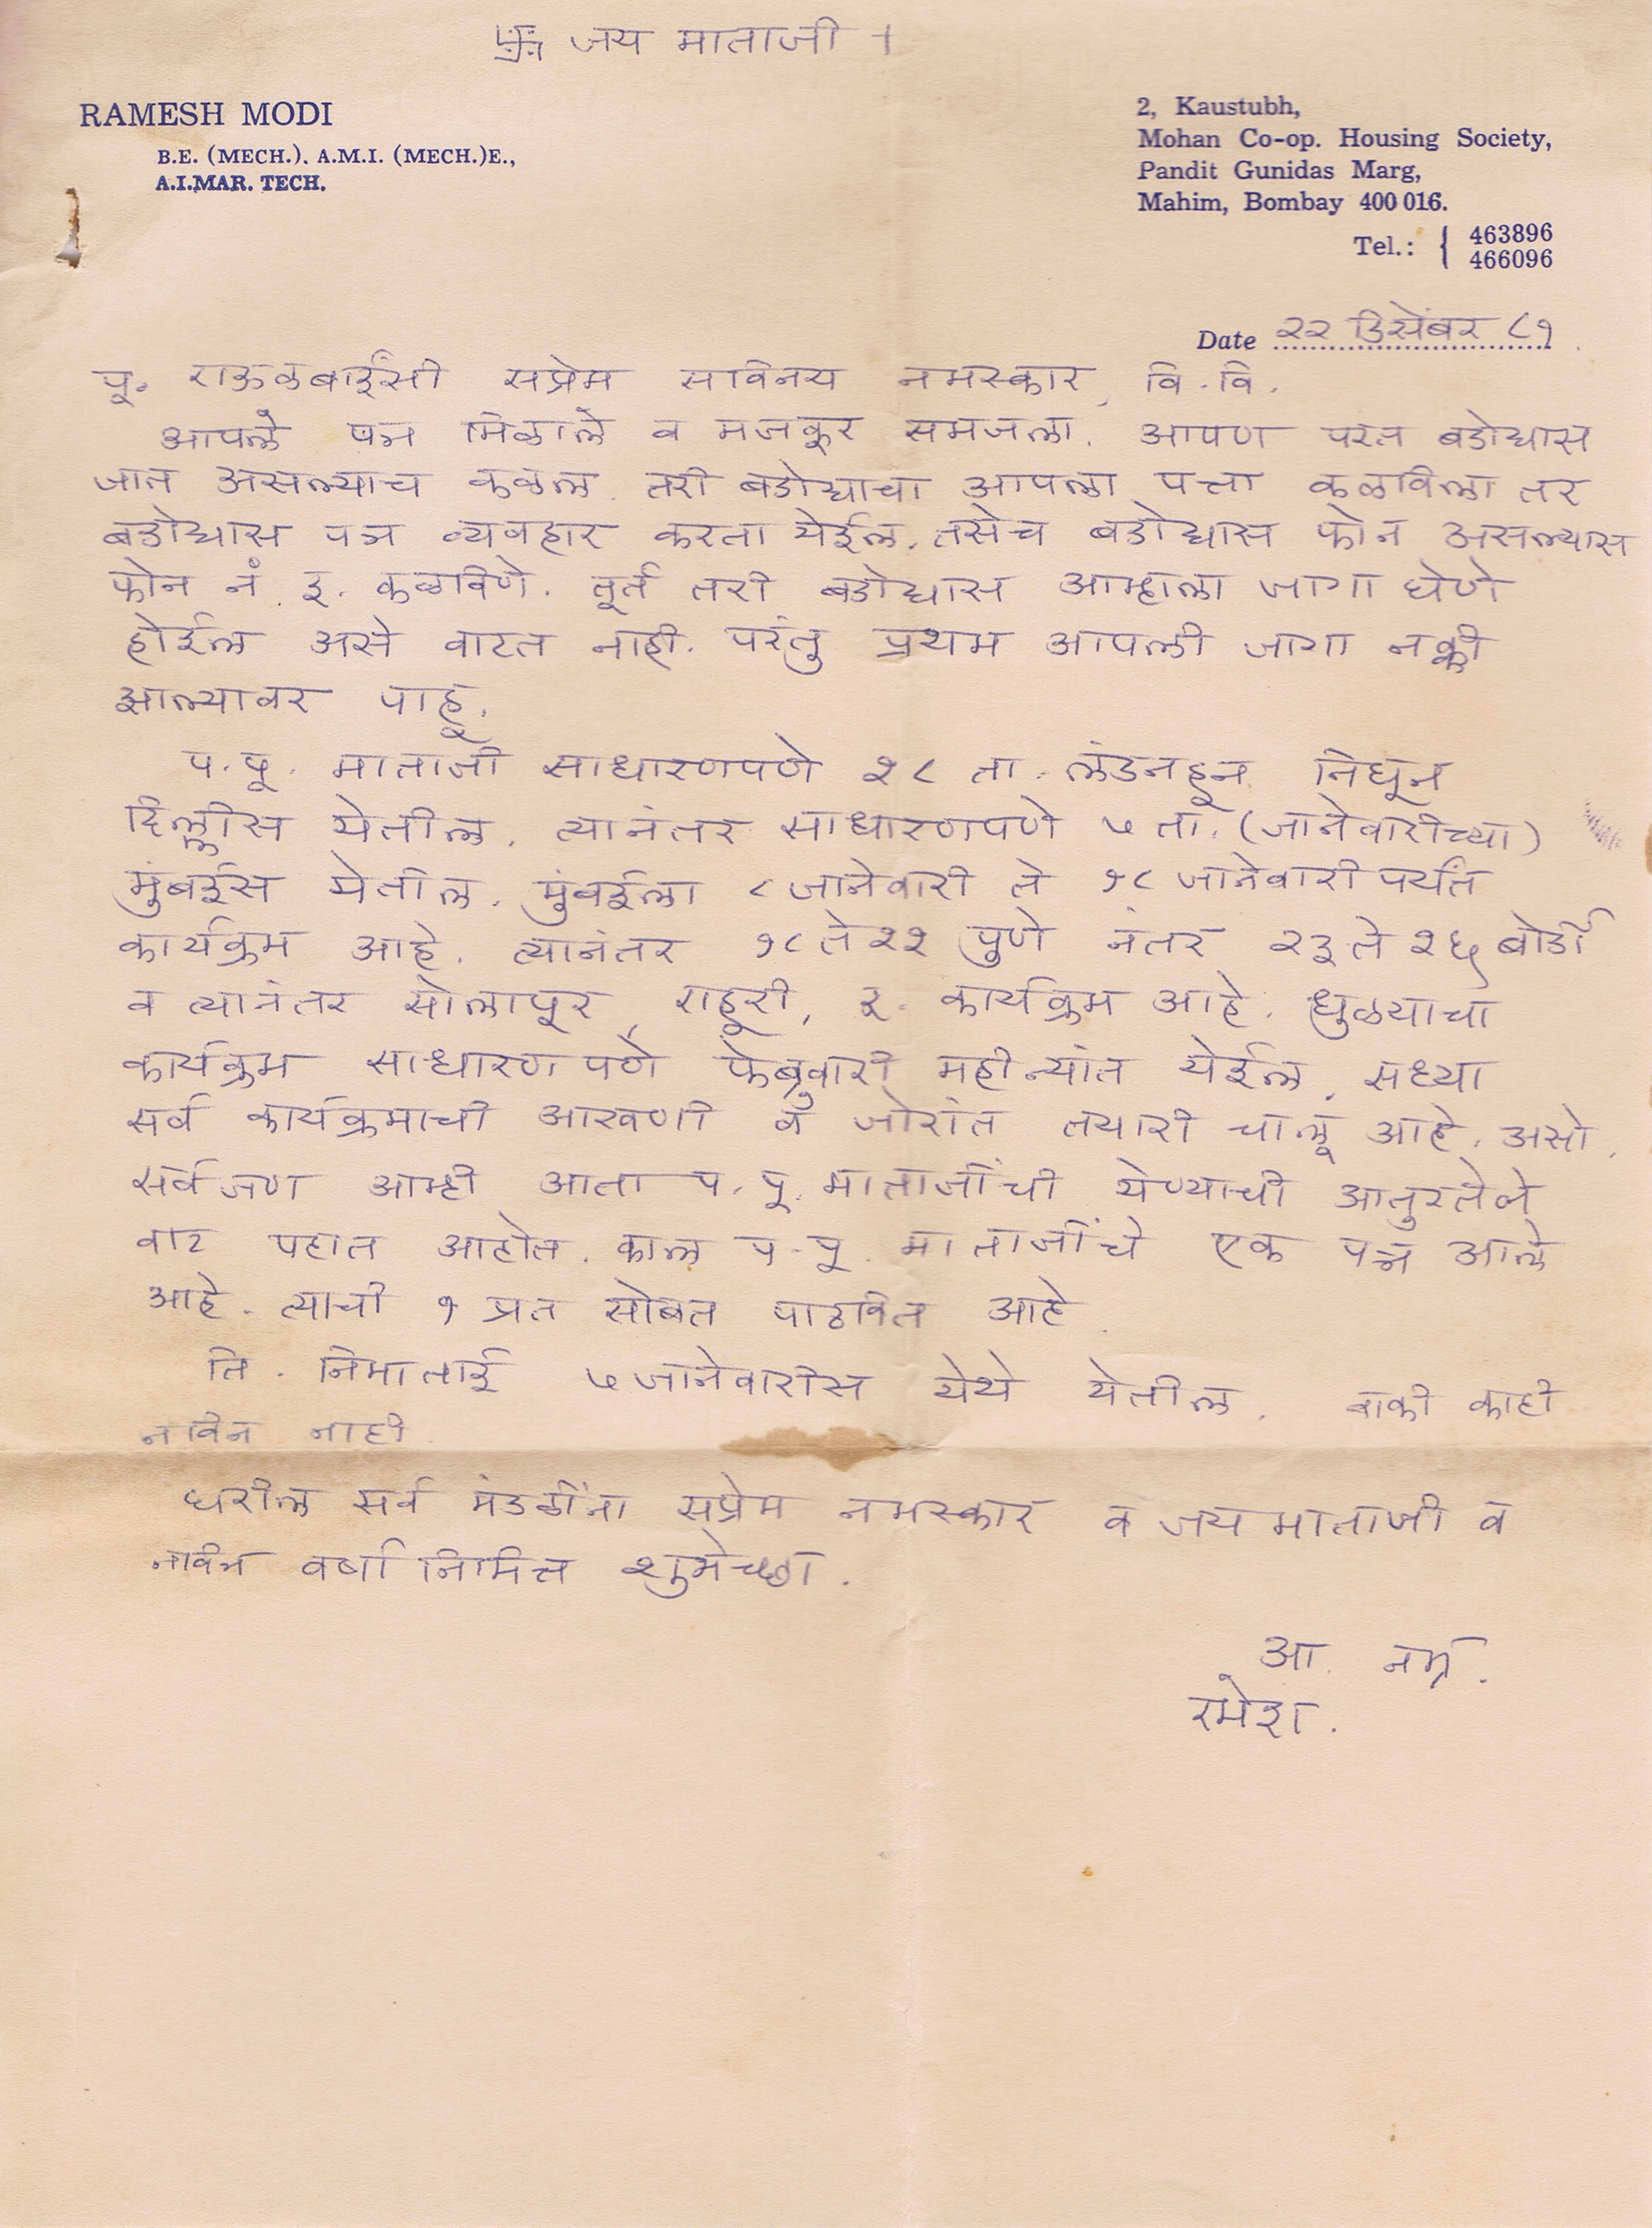 卐 जय माताजी ।
RAMESH MODI
B.E. (MECH.). A.M.I. (MECH.)E.,
A.I.MAR. TECH.
2, Kaustubh,
Mohan Co-op. Housing Society,
Pandit Gunidas Marg,
Mahim, Bombay 400 016.
Tel.: { 463896
466096
Date २२ डिसेंबर ८१
पू. राऊळबाईसी सप्रेम सविनय नमस्कार, वि. वि.
आपले पत्र मिळाले व मजकूर समजला. आपण परत बडोद्यास
जात असल्याच कळल. तरी बडोद्याचा आपला पत्ता कळविला तर
बडोद्यास पत्र व्यवहार करता येईल. तसेच बडोद्यास फोन असल्यास
फोन नं. इ. कळविणे. तूर्त तरी बडोद्यास आम्हाला जागा घेणे
होईल असे वाटत नाही. परंतु प्रथम आपली जागा नक्की
झाल्यावर पाहू.
प. पू. माताजी साधारणपणे २८ ता. लंडनहून निघून
दिल्लीस येतील. त्यानंतर साधारणपणे ५ ता. (जानेवारीच्या)
मुंबईस येतील. मुंबईला ८ जानेवारी ते १८ जानेवारी पर्यंत
कार्यक्रम आहे. त्यानंतर १८ ते २२ पुणे नंतर २३ ते २६ बोर्डी
व त्यानंतर सोलापूर, राहूरी, इ. कार्यक्रम आहे. धुळ्याचा
कार्यक्रम साधारण पणे फेब्रुवारी महीन्यांत येईल. सध्या
सर्व कार्यक्रमाची आखणी व जोरांत तयारी चालू आहे. असो.
सर्वजण आम्ही आता प. पू. माताजींची येण्याची आतुरतेने
वाट पहात आहोत. काल प. पू. माताजींचे एक पत्र आले
आहे. त्याची १ प्रत सोबत पाठवित आहे.
ति. निमाताई ५ जानेवारीस येथे येतील. बाकी काही
नविन नाही.
घरील सर्व मंडळींना सप्रेम नमस्कार व जय माताजी व
नविन वर्षा निमित्त शुभेच्छा.
आ. नम्र.
रमेश.